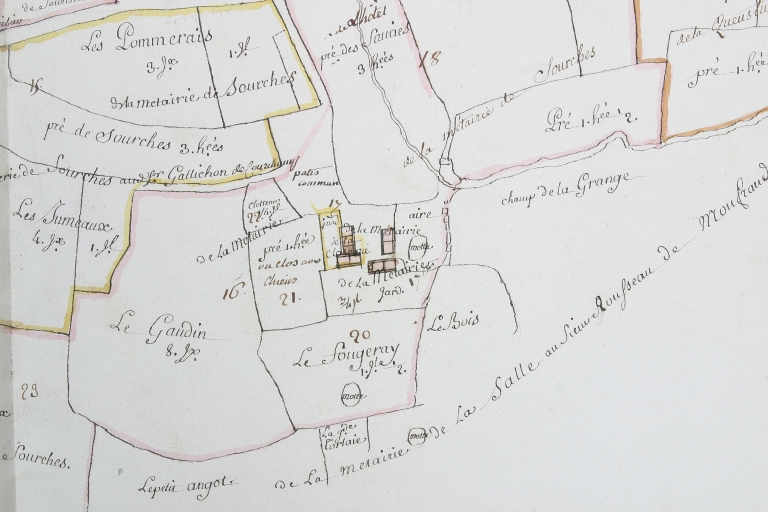 Les Pommerais
3. Jx
1. Jl
de la metairie de Sourches
pré de Sourches 3. hées
de l'hôtel
pré des
3 hées
18
de la métairie de Sourches
Pré 1. hée 1/2.
de la
pré 1. hée
champ de la Grange
de Sourches aud. Sr Gallichon de Courchamp
patis
commun
Les Jumeaux
4. Jx
1. Jl
de la Metairie
16.
pré 1. hée
ou clos aux
chiens
21.
17
aire
de la Metairie
motte
de La Metairie
Jard.
3/4 Jl
Le Gaudin
8. Jx
20
Le Fougeray
1. Jl 1/2.
motte
Le Bois
23
Sourches.
Le petit angot
de La metairie de La Salle au Sieur Rousseau de
motte